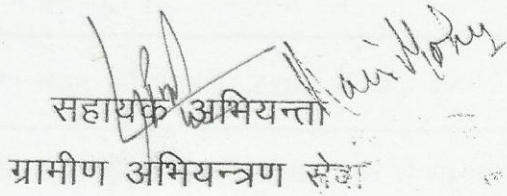 सहायक अभियन्ता
ग्रामीण अभियन्त्रण सेवा